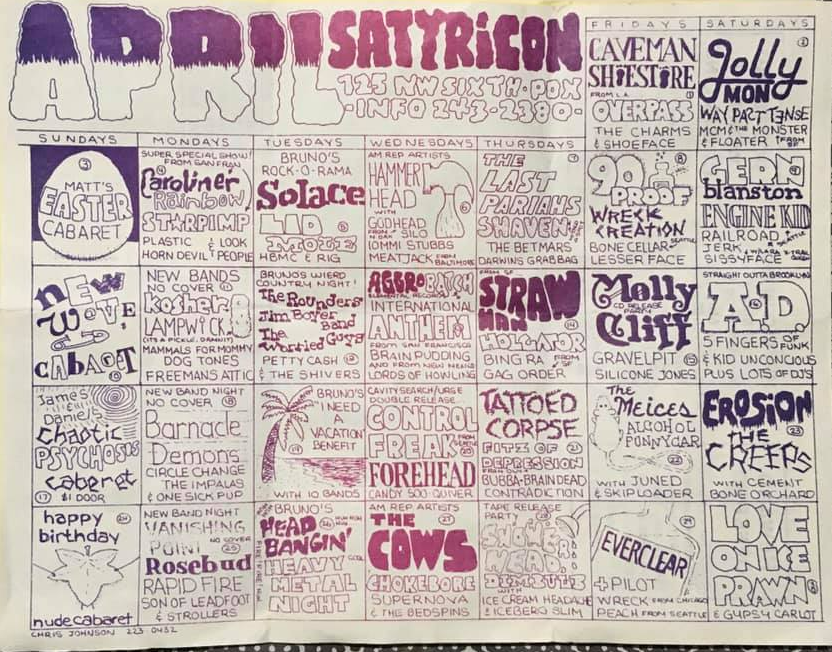 APRIL
SATYRICON
125 NW SIXTH·PDX
-INFO 243-2380-
FRIDAYS
SATURDAYS
CAVEMAN
SHOESTORE
FROM L.A. 1
OVERPASS
THE CHARMS
& SHOEFACE
2
Jolly
MON
WAY PAST TENSE
MCM & THE MONSTER
& FLOATER
SUNDAYS
MONDAYS
TUESDAYS
WEDNESDAYS
THURSDAYS
3
MATT'S
EASTER
CABARET
SUPER SPECIAL SHOW!
FROM SAN FRAN
4
Caroliner
Rainbow
STARPIMP
PLASTIC & LOOK
HORN DEVIL PEOPLE
BRUNO'S
ROCK-O-RAMA
Solace
LID 5
MOLE
HBMC & RIG
AM REP ARTISTS
HAMMER
HEAD 6
WITH
GODHEAD
SILO
IOMMI STUBBS
MEATJACK FROM BALTIMORE
THE 7
LAST
PARIAHS
SHAVEN
THE BETMARS
DARWINS GRABBAG
90 8
PROOF
WRECK
CREATION
BONE CELLAR
LESSER FACE
GERN 9
blanston
ENGINE KID
RAILROAD
JERK
SISSYFACE
NEW
WAVE
CABARET
10
NEW BANDS
NO COVER 11
Kosher
LAMPWICK
(ITS A PICKLE, DAMMIT)
MAMMALS FOR MOMMY
DOG TONES
FREEMANS ATTIC
BRUNO'S WIERD
COUNTRY NIGHT!
The Rounders
Jim Boyer
Band
The
Worried Guys
PETTY CASH 12
& THE SHIVERS
AGGRO BATCH
INTERNATIONAL
ANTHEM
FROM SAN FRANCISCO
BRAIN PUDDING
LORDS OF HOWLING
STRAW
MAN 14
HOLGATOR
BING RA FROM S.F.
GAG ORDER
Molly
CD RELEASE
PARTY
Cliff
GRAVELPIT 15
SILICONE JONES
STRAIGHT OUTTA BROOKLYN
A.D. 16
5 FINGERS OF FUNK
& KID UNCONCIOUS
PLUS LOTS OF DJ'S
James
Daney's
Chaotic
PSYCHOSIS
cabaret
17 $1 DOOR
NEW BAND NIGHT
NO COVER 18
Barnacle
Demons
CIRCLE CHANGE
THE IMPALAS
& ONE SICK PUP
BRUNO'S
I NEED
A
VACATION
BENEFIT
19
WITH 10 BANDS
CAVITY SEARCH/URGE
DOUBLE RELEASE
CONTROL
FREAK FROM SEATTLE 20
FOREHEAD
CANDY 500·QUIVER
TATTOED
CORPSE
FITZ OF 21
DEPRESSION
BUBBA·BRAINDEAD
CONTRADICTION
The
Meices
ALCOHOL
FUNNYCAR
22
WITH JUNED
& SKIPLOADER
EROSION
23
THE
CREEPS
WITH CEMENT
BONE ORCHARD
happy 24
birthday
nude cabaret
NEW BAND NIGHT
VANISHING
POINT NO COVER 25
Rosebud
RAPID FIRE
SON OF LEADFOOT
& STROLLERS
BRUNO'S
26
HEAD
BANGIN'
HEAVY
METAL
NIGHT
AM REP ARTISTS
27
THE
COWS
CHOKEBORE
SUPERNOVA
& THE BEDSPINS
TAPE RELEASE
PARTY 28
SHOWER
HEAD
DIMINISH
WITH
ICE CREAM HEADACHE
& ICEBERG SLIM
29
EVERCLEAR
+ PILOT
WRECK FROM CHICAGO
PEACH FROM SEATTLE
LOVE
ON ICE
PRAWN
& GYPSY CARLOT
CHRIS JOHNSON 223 0432